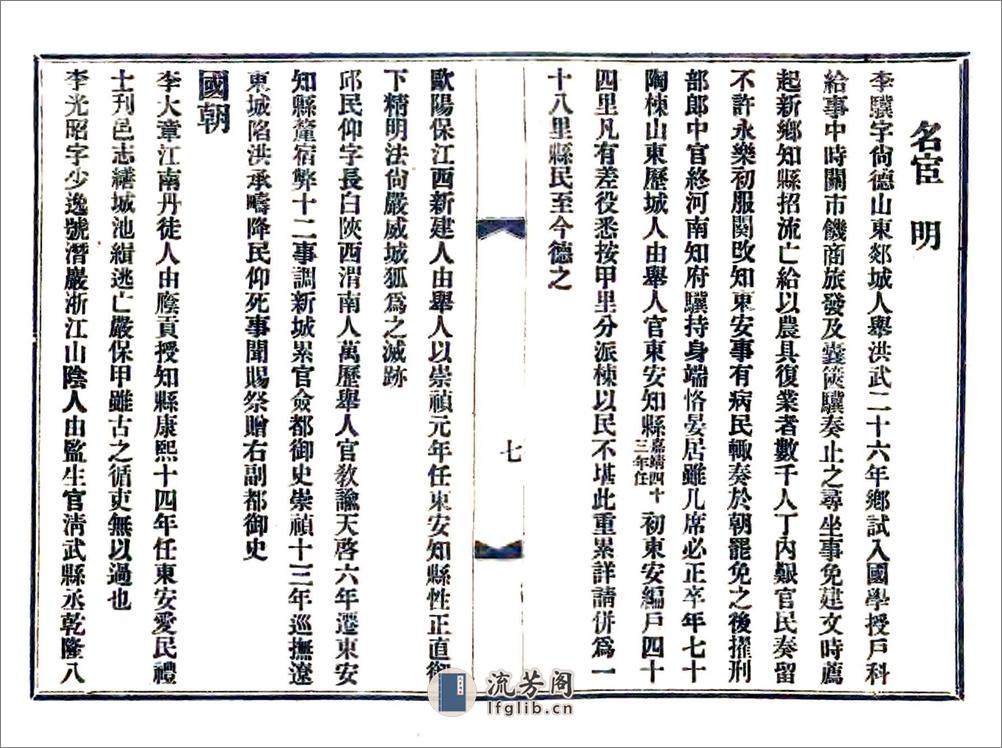 名宦　明
李驥字尚德山東郯城人舉洪武二十六年鄉試入國學授戸科
給事中時關市饑商旅發及囊篋驥奏止之尋坐事免建文時薦
起新鄉知縣招流亡給以農具復業者數千人丁內艱官民奏留
不許永樂初服闋改知東安事有病民輒奏於朝罷免之後擢刑
部郎中官終河南知府驥持身端恪晏居雖几席必正卒年七十
陶棟山東歷城人由舉人官東安知縣嘉靖四十三年任初東安編戸四十
四里凡有差役悉按甲里分派棟以民不堪此重累詳請併爲一
十八里縣民至今德之
七
歐陽保江西新建人由舉人以崇禎元年任東安知縣性正直御
下精明法尚嚴威城狐爲之滅跡
邱民仰字長白陝西渭南人萬歷舉人官敎諭天啓六年遷東安
知縣釐宿弊十二事調新城累官僉都御史崇禎十三年巡撫遼
東城陷洪承疇降民仰死事聞賜祭贈右副都御史
國朝
李大章江南丹徒人由廕貢授知縣康熙十四年任東安愛民禮
士刋邑志繕城池緝逃亡嚴保甲雖古之循吏無以過也
李光昭字少逸號潛巖浙江山陰人由監生官清武縣丞乾隆八
流芳阁
lfglib.cn